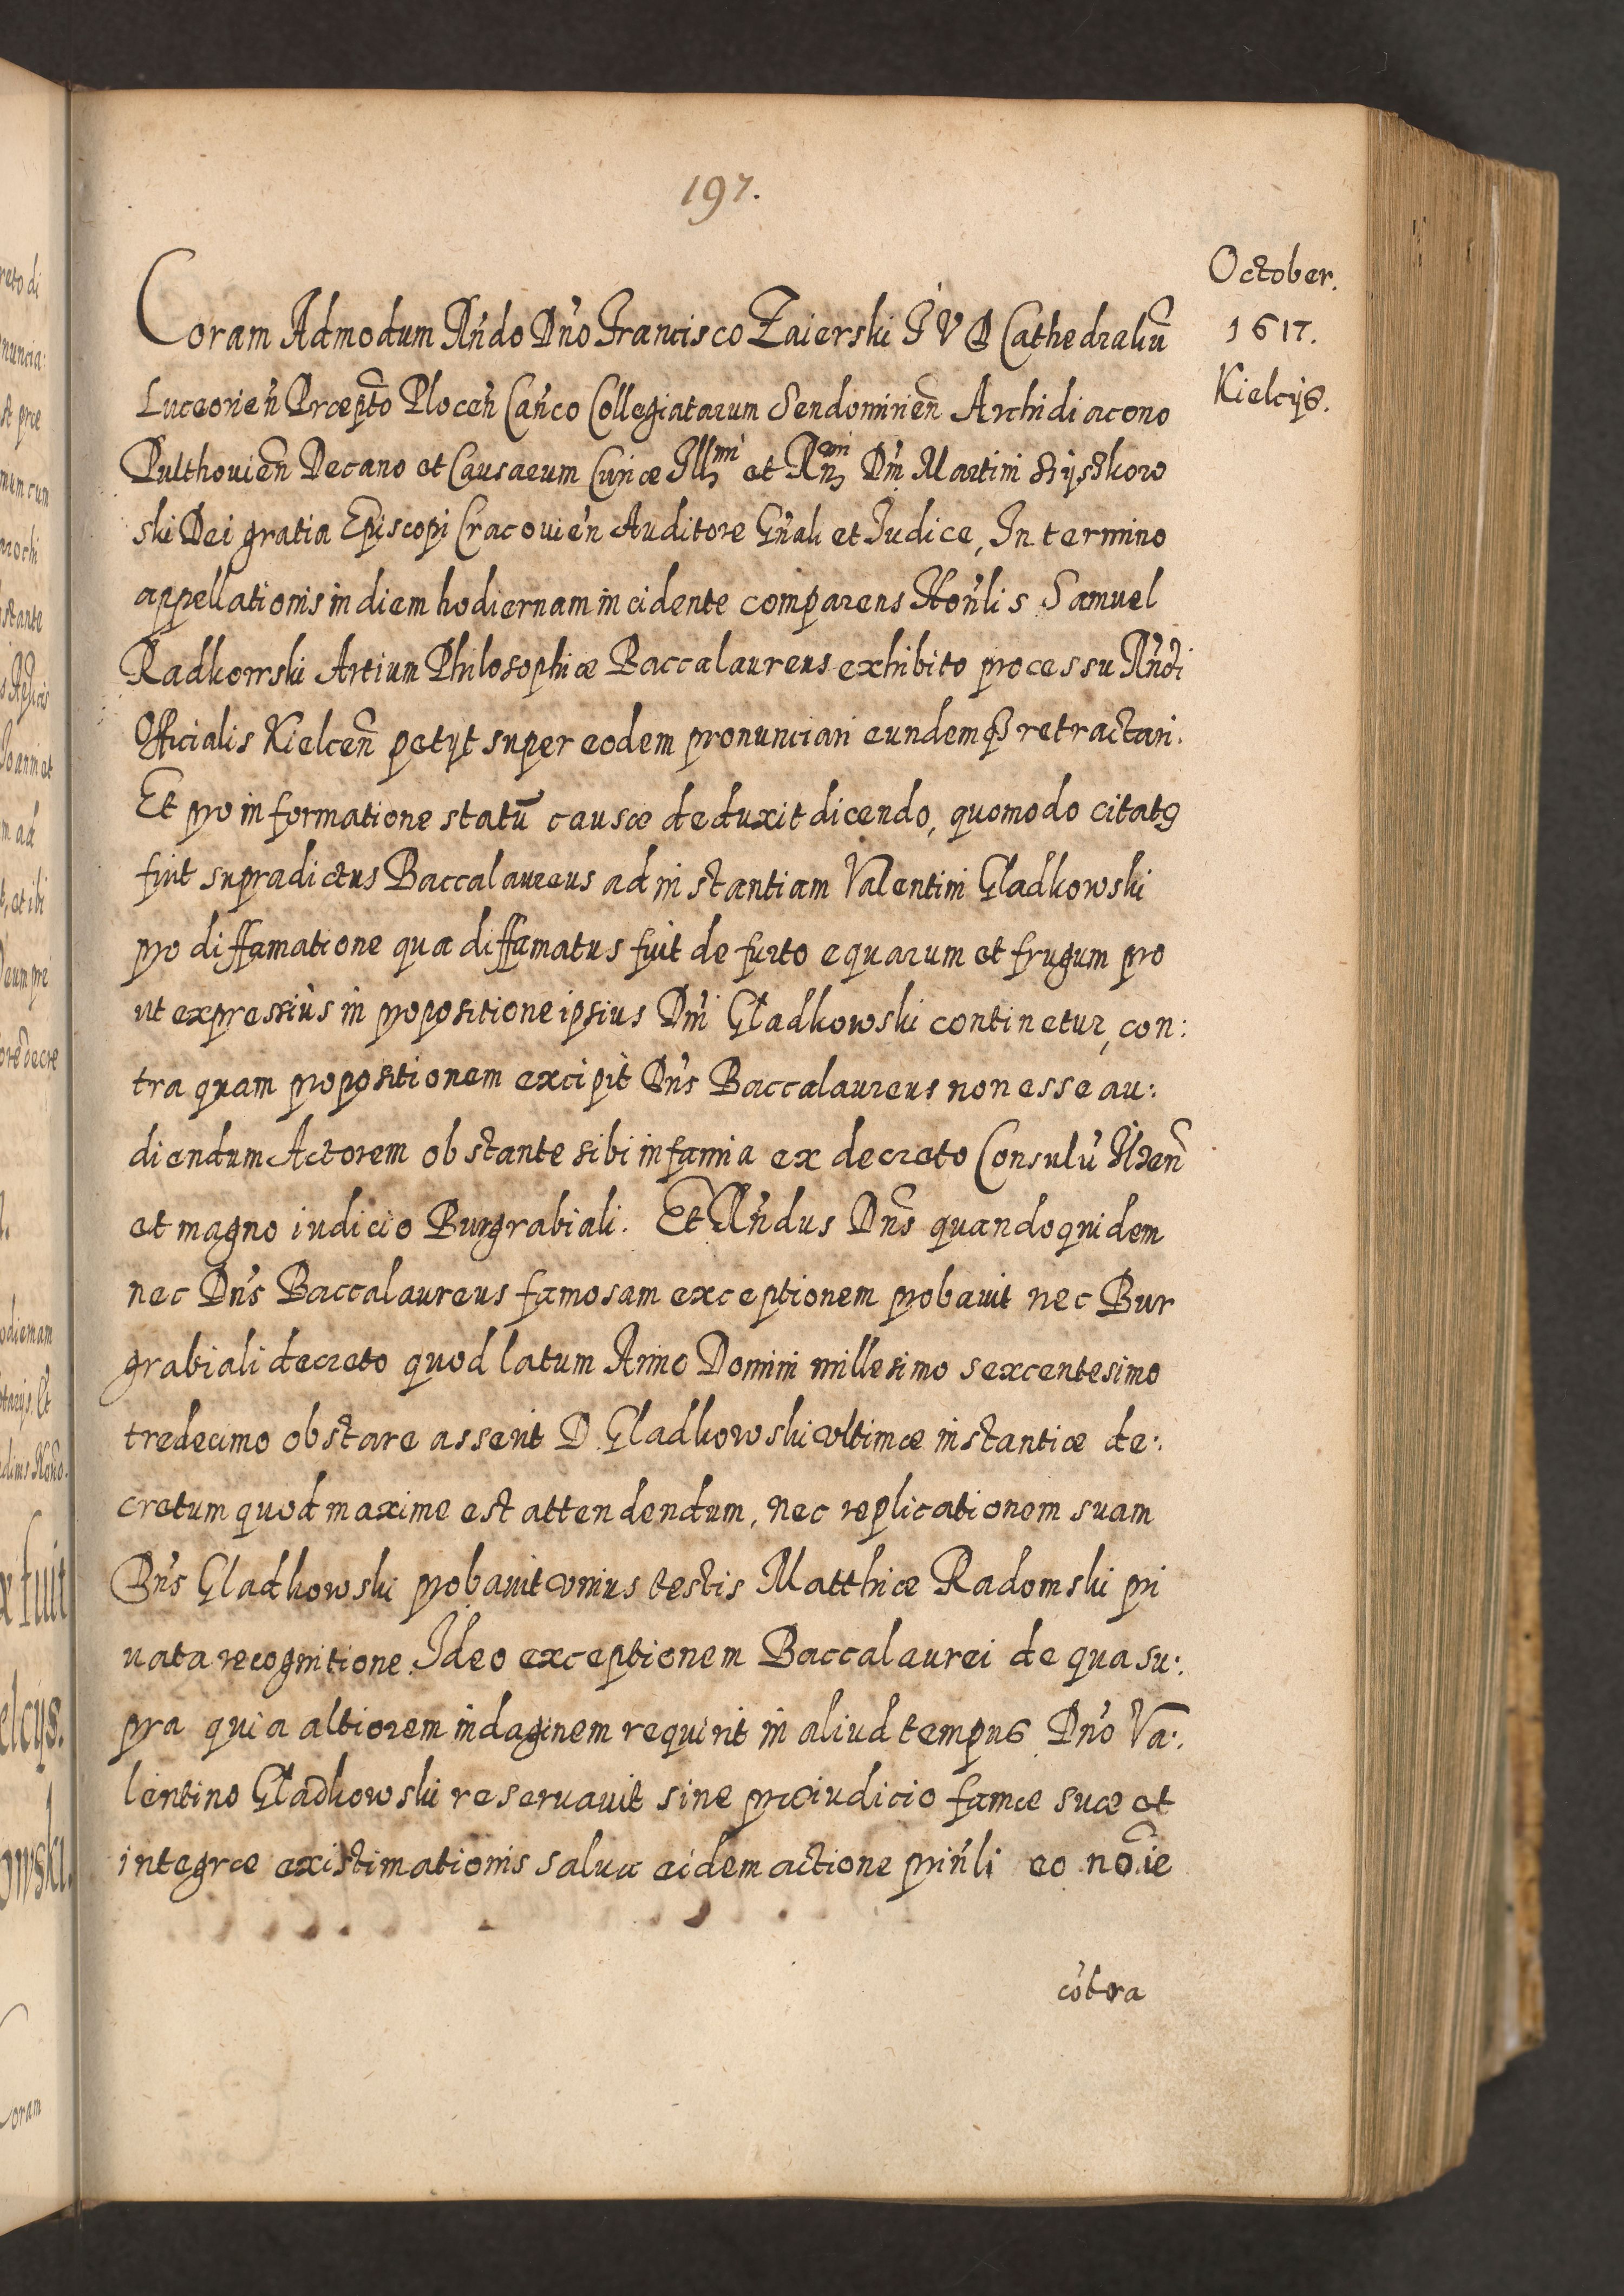 197.
October.
1617.
Kielcijs.
Coram Admodum Rńdo Dńo Francisco Zaierski I V D Cathedraliũ
Luceorień Præptõ Plociń Cańco Collegiatarum Sendomirień Archidiacono
Pulthovień Decano et Causarum Curiæ Illmi et Rmi Dńi Martini Szyszkow
ski Dei gratia Episcopi Cracovień Auditore Gńali et Iudice, In termino
appellationis in diem hodiernam incidente comparens Hońlis Samuel
Radkowski Artium Philosophiæ Baccalaureus exhibito processu Rńdi
Officialis Kielceń petyt super eodem pronunciari eundemq3 retractari.
Et pro informatione statũ causæ deduxit dicendo, quomodo citat9
fuit supradictus Baccalaureus ad instantiam Valentini Gladkowski
pro diffamatione qua diffamatus fuit de furto equarum et frugum pro
ut expressius in propositione ipsius Dńi Gladkowski continetur, con:
tra quam propositionem excipit Dńs Baccalaureus non esse au:
diendum Actorem obstante sibi infamia ex decreto Consulũ
et magno iudicio Burgrabiali. Et Rńdus Dńs quandoquidem
nec Dńs Baccalaureus famosam exceptionem probavit nec Bur
grabiali decreto quod latum Anno Domini millesimo sexcentesimo
tredecimo obstare asserit D Gladkowski ultimæ instantiæ de:
cretum quod maxime est attendendum, nec replicationem suam
Dńs Gladkowski probavit unius testis Matthiæ Radomski pri
uata recognitione. Ideo exceptionem Baccalaurei de qua su:
pra quia altiorem indaginem requirit in aliud tempus Dńo Va:
lentino Gladkowski reseruauit sine præiudicio famæ suæ et
integræ existimationis salua eidem actione prińli eo nõie
cõtra